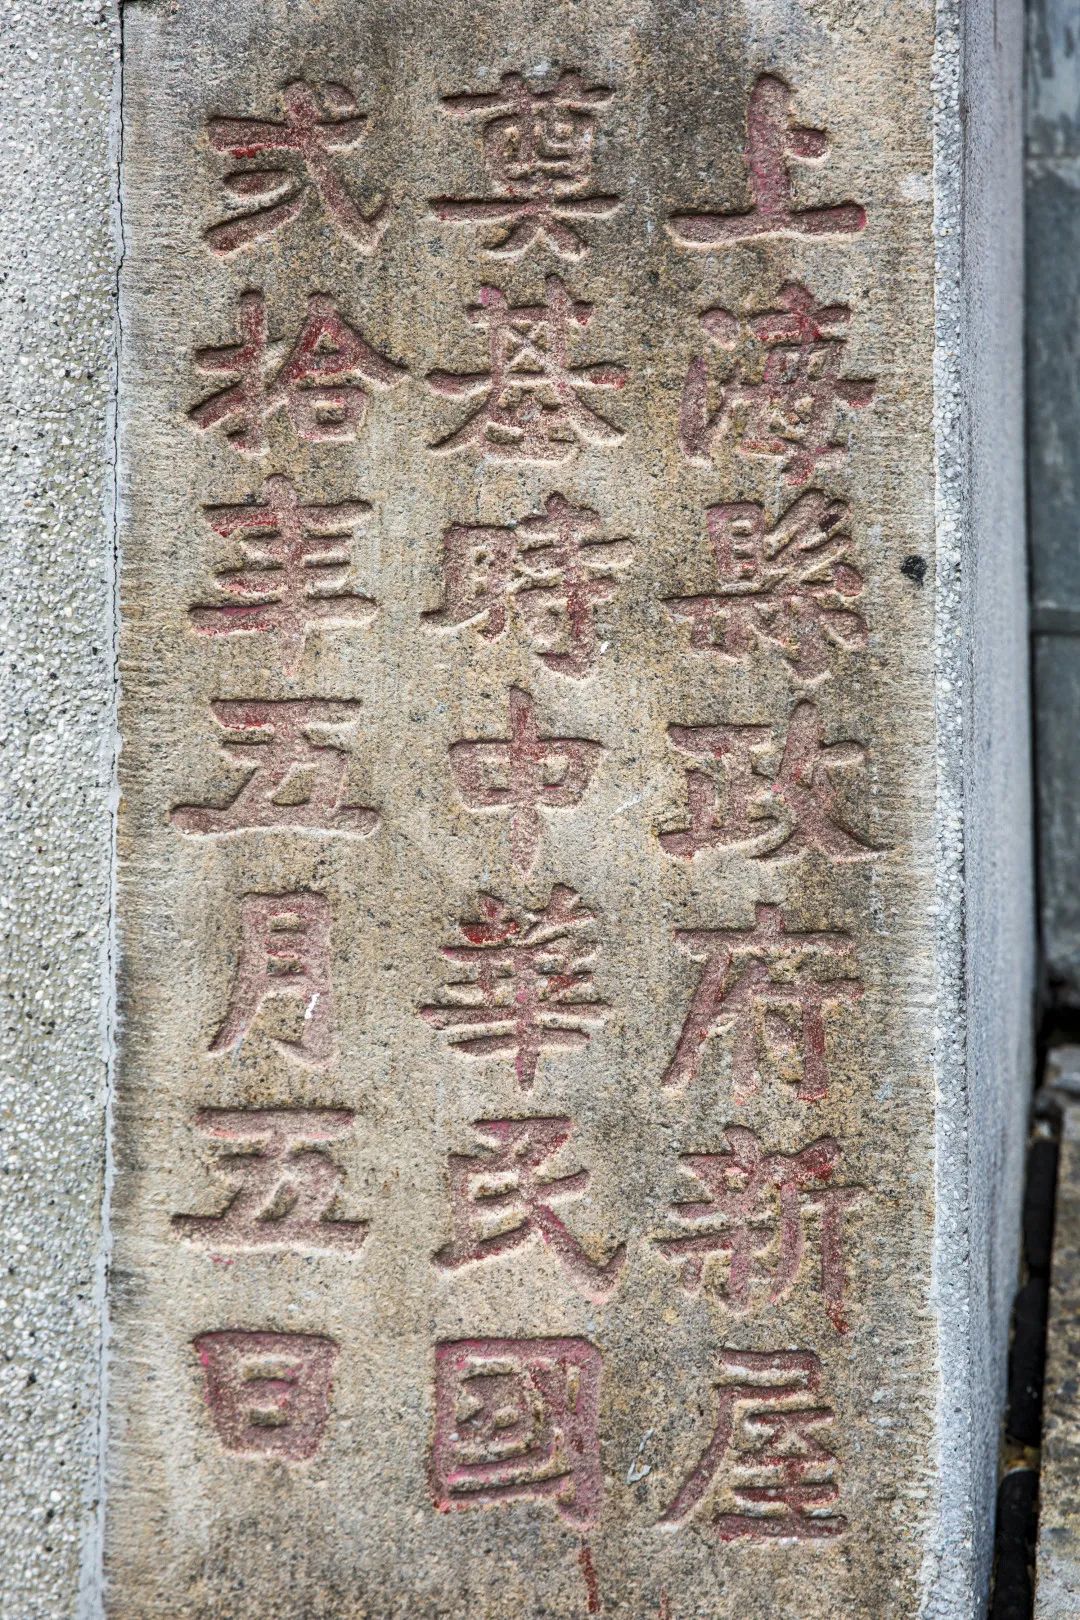 上海縣政府新屋
奠基時中華民國
弍拾年五月五日